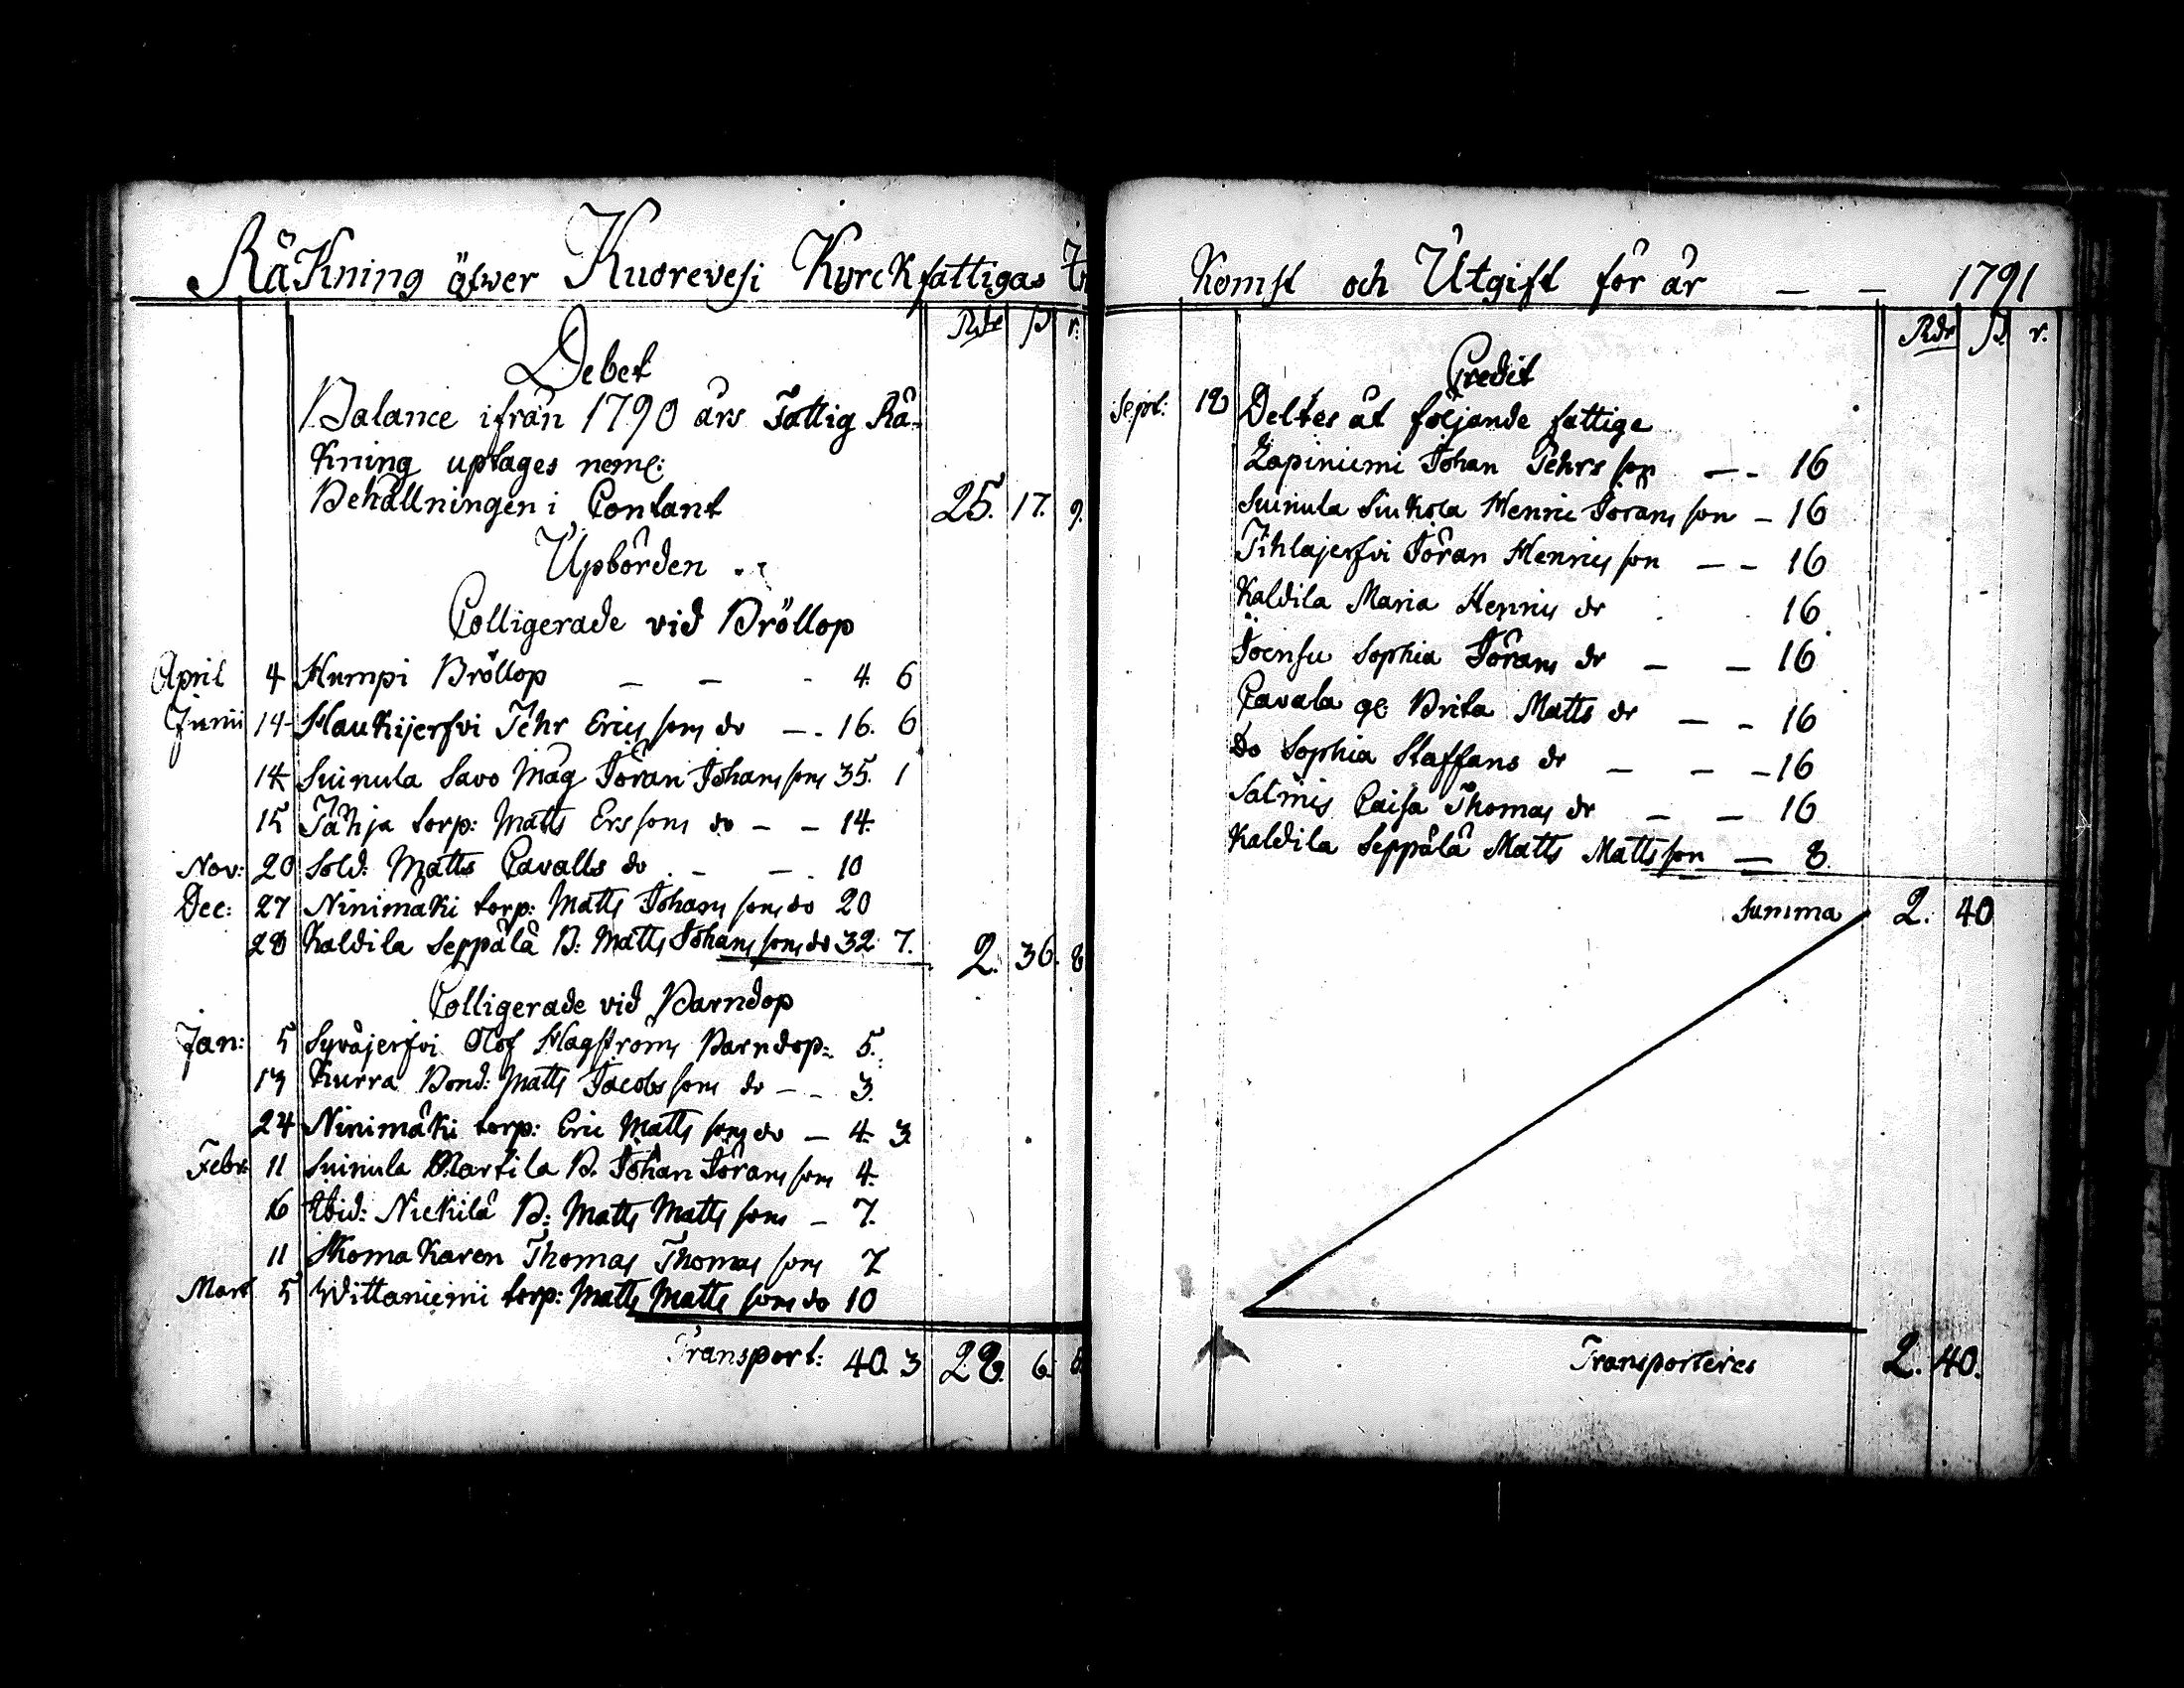 Räkning öfwer Kuorevesi Kyrckfattigas
Rdr ß r:
Debet
Balance ifrån 1790 års Fattig Rä-
kning uptages neml:
Behållningen i Contant 25. 17. 9.
Upbörden
Colligerade vid Bröllop
April 4 Humpi Bröllop — — - 4. 6
Junii 14 Haukijerfvi Pehr Erics sons do — . 16. 6
14 Suinula Savo Måg Jöran Johans sons 35. 1
15 Pähja torp: Matts Ers sons do - - 14.
Nov: 20 Sold: Matts Cavalls do . - — . 10
Dec: 27 Ninimäki torp: Matts Johans sons do 20
28 Kaldila Seppälä B: Matts Johans sons do 32. 7. 2. 36. 8
Colligerade vid Barndop
Jan: 5 Syväjerfvi Olof Hagströms Barndop: 5.
13 Kurra Bond: Matts Jacobs sons do — - 3.
24 Ninimäki torp: Eric Matts sons do — 4. 3.
Febr: 11 Suinula Martila B. Johan Jörans sons 4.
16 Ibid: Nickilä B: Matts Matts sons - 7.
11 Skomakaren Thomas Thomas sons 7.
Mart 5 Wittaniemi torp: Matts Matts sons do 10
Transport: 40. 3 28. 6. 8
Komst och Utgift för år — — 1791
Rdr ß. r.
Credit
Sept: 18 Deltes åt följande fattige
Lapiniemi Johan Pehrs son — - 16
Suinula Siukola Henric Jörans son - 16
Pihlajerfvi Jöran Henrics son — - 16
Kaldila Maria Henrics dr 16
Joensu Sophia Jörans dr — — 16
Cavala gl: Brita Matts dr — - 16
Do Sophia Staffans dr — — - 16
Salmis Caisa Thomas dr — — 16
Kaldila Seppälä Matts Matts son — 8.
Summa 2. 40
Transporteres 2. 40.